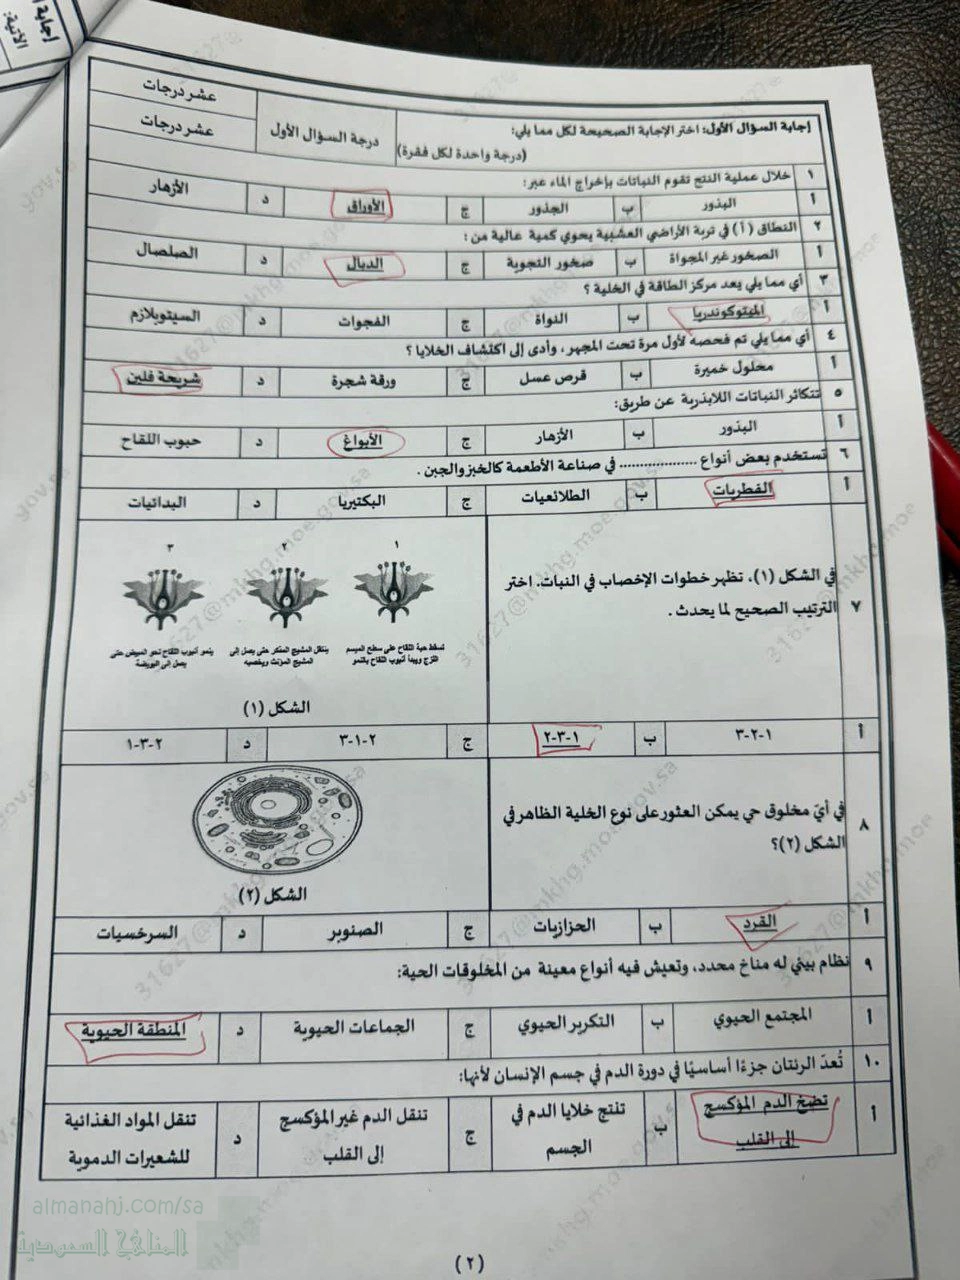 إجابة
الآتية:
إجابة السؤال الأول: اختر الإجابة الصحيحة لكل مما يلي:
(درجة واحدة لكل فقرة)
درجة السؤال الأول
عشر درجات
عشر درجات
١ خلال عملية النتح تقوم النباتات بإخراج الماء عبر:
أ البذور ب الجذور ج الأوراق د الأزهار
٢ النطاق (أ) في تربة الأراضي العشبية يحوي كمية عالية من:
أ الصخور غير المجواة ب صخور التجوية ج الدبال د الصلصال
٣ أي مما يلي يعد مركز الطاقة في الخلية؟
أ الميتوكوندريا ب النواة ج الفجوات د السيتوبلازم
٤ أي مما يلي تم فحصه لأول مرة تحت المجهر، وأدى إلى اكتشاف الخلايا؟
أ محلول خميرة ب قرص عسل ج ورقة شجرة د شريحة فلين
٥ تتكاثر النباتات اللابذرية عن طريق:
أ البذور ب الأزهار ج الأبواغ د حبوب اللقاح
٦ تستخدم بعض أنواع .................. في صناعة الأطعمة كالخبز والجبن.
أ الفطريات ب الطلائعيات ج البكتيريا د البدائيات
٧ في الشكل (١)، تظهر خطوات الإخصاب في النبات. اختر
الترتيب الصحيح لما يحدث.
١ ٢ ٣
تسقط حبة اللقاح على سطح الميسم
اللزج ويبدأ أنبوب اللقاح بالنمو
ينتقل المشيج المذكر حتى يصل إلى
المشيج المؤنث ويخصبه
ينمو أنبوب اللقاح نحو المبيض حتى
يصل إلى البويضة
الشكل (١)
أ ١-٢-٣ ب ١-٣-٢ ج ٢-١-٣ د ٢-٣-١
٨ في أيّ مخلوق حي يمكن العثور على نوع الخلية الظاهر في
الشكل (٢)؟
الشكل (٢)
أ القرد ب الحزازيات ج الصنوبر د السرخسيات
٩ نظام بيئي له مناخ محدد، وتعيش فيه أنواع معينة من المخلوقات الحية:
أ المجتمع الحيوي ب التكرير الحيوي ج الجماعات الحيوية د المنطقة الحيوية
١٠ تُعدّ الرئتان جزءًا أساسيًا في دورة الدم في جسم الإنسان لأنها:
أ تضخ الدم المؤكسج إلى القلب ب تنتج خلايا الدم في الجسم ج تنقل الدم غير المؤكسج إلى القلب د تنقل المواد الغذائية للشعيرات الدموية
almanahj.com/sa
المناهج السعودية
(٢)
31627@mkhg.moe.gov.sa